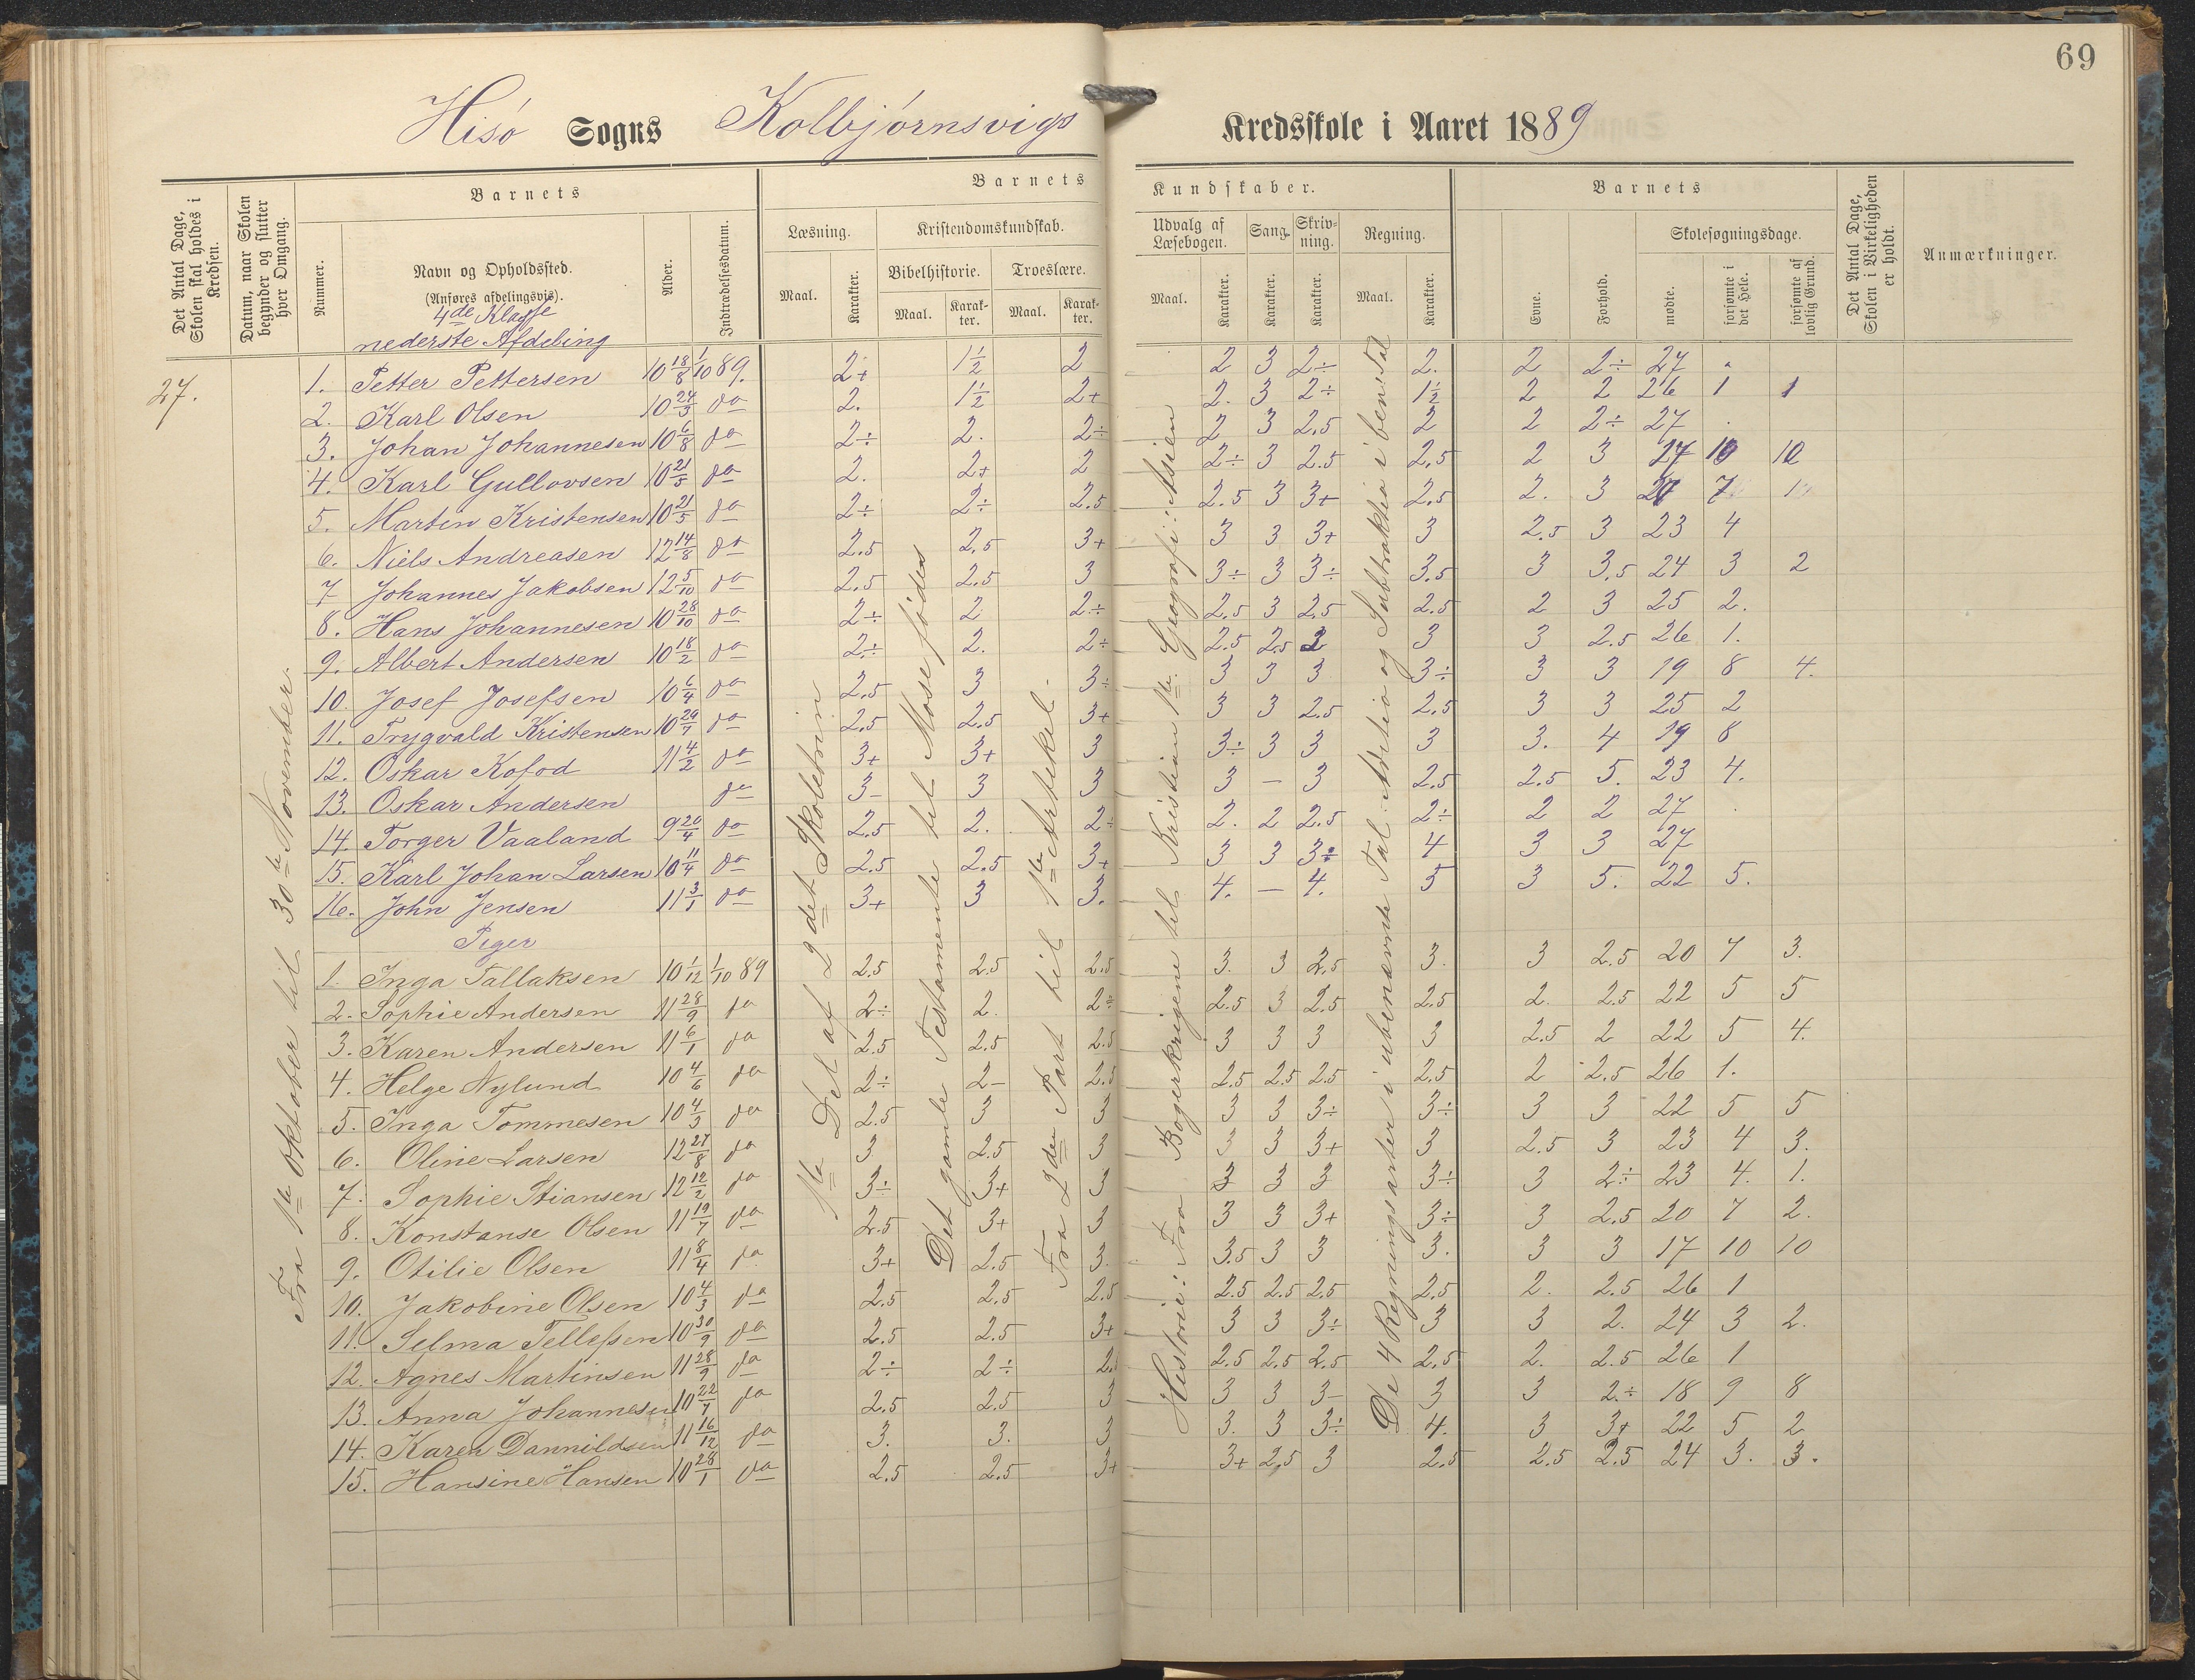 69
Hisö Sogns Kolbjörnsvigs Kredsskole i Aaret 1889
Det Antal Dage, Skolen skal holdes i Kredsen.
Datum, naar Skolen begynder og slutter hver Omgang.
Barnets
Nummer.
Navn og Opholdssted.
(Anføres afdelingsvis).
Alder.
Indtrædelsesdatum.
Barnets Kundskaber.
Læsning.
Maal.
Karakter.
Kristendomskundskab.
Bibelhistorie.
Maal.
Karakter.
Troeslære.
Maal.
Karakter.
Udvalg af Læsebogen.
Maal.
Karakter.
Sang.
Karakter.
Skrivning.
Karakter.
Regning.
Maal.
Karakter.
Barnets
Evne.
Forhold.
Skolesøgningsdage.
mødte.
forsømte i det Hele.
forsømte af lovlig Grund.
Det Antal Dage, Skolen i Virkeligheden er holdt.
Anmærkninger.
4de Klasse
nederste Afdeling
27.
Fra 1ste Oktober til 30te November.
1ste Del af 2det Skoletrin
Det gamle Testamente til Mose fødes
Fra 2den Part til 1ste Artikel.
Historie: Fra Bogerkrigene til Kristian 1ste. Geografi: Asien
De 4 Regningsarter i ubenævnte Tal. Addition og Subtraktion i ben. Tal
1. Petter Pettersen 10 18/8 1/10 89. 2+ 1½ 2 2 3 2÷ 2. 2 2÷ 27
2. Karl Olsen 10 24/5 do 2. 1½ 2+ 2. 3 2÷ 1½ 2 2 26 1 1
3. Johan Johannesen 10 6/8 do 2÷ 2. 2÷ 2 3 2.5 2 2 2÷ 27
4. Karl Gullovsen 10 21/5 do 2. 2+ 2 2÷ 3 2.5 2.5 2 3 10 10
5. Martin Kristensen 10 21/5 do 2÷ 2÷ 2.5 2.5 3 3+ 2.5 2. 3 7
6. Niels Andreasen 12 14/8 do 2.5 2.5 3+ 3 3 3+ 3 2.5 3 23 4
7 Johannes Jakobsen 12 5/10 do 2.5 2.5 3 3÷ 3 3÷ 3.5 3 3.5 24 3 2
8. Hans Johannesen 10 28/10 do 2÷ 2 2÷ 2.5 3 2.5 2.5 2 3 25 2.
9. Albert Andersen 10 18/2 do 2÷ 2. 2÷ 2.5 2.5 3 3 2.5 26 1.
10. Josef Josefsen 10 6/4 do 2.5 3 3÷ 3 3 3 3÷ 3 3 19 8 4.
11. Trygvald Kristensen 10 29/7 do 2.5 2.5 3+ 3 3 2.5 2.5 3 3 25 2
12. Oskar Kofod 11 4/2 do 3+ 3+ 3 3÷ 3 3 3 3. 4 19 8
13. Oskar Andersen do 3- 3 3 3 - 3 2.5 2.5 5. 23 4.
14. Torger Vaaland 9 20/4 do 2.5 2. 2÷ 2. 2 2.5 2÷ 2 2 27
15. Karl Johan Larsen 10 11/4 do 2.5 2.5 3+ 3 3 3÷ 4 3 3 27
16. John Jensen 11 3/1 do 3+ 3 3. 4. - 4. 5 3 5. 22 5.
Piger
1. Inga Tallaksen 10 1/12 1/10 89 2.5 2.5 2.5 3. 3 2.5 3. 3 2.5 20 7 3.
2. Sophie Andersen 11 28/9 do 2÷ 2. 2÷ 2.5 3 2.5 2.5 2. 2.5 22 5 5
3. Karen Andersen 11 6/1 do 2.5 2.5 2.5 3 3 3 3 2.5 2 22 5 4.
4. Helge Nylund 10 4/6 do 2÷ 2- 2.5 2.5 2.5 2.5 2.5 2 2.5 26 1.
5. Inga Tommesen 10 4/3 do 2.5 3 3 3 3 3÷ 3÷ 3 3 22 5 5
6. Oline Larsen 12 27/8 do 3 2.5 3 3 3 3+ 3 2.5 3 23 4 3.
7. Sophie Stiansen 12 12/2 do 3÷ 3+ 3 3 3 3 3÷ 3 2÷ 23 4. 1.
8. Konstanse Olsen 11 19/7 do 2.5 3+ 3 3 3 3+ 3÷ 3 2.5 20 7 2.
9. Otilie Olsen 11 8/4 do 3+ 2.5 3. 3.5 3 3 3. 3 3 17 10 10
10. Jakobine Olsen 10 4/3 do 2.5 2.5 2.5 2.5 2.5 2.5 2.5 2. 2.5 26 1
11. Selma Tellefsen 10 30/9 do 2.5 2.5 3+ 3 3 3÷ 3 3 2. 24 3 2.
12. Agnes Martinsen 11 28/9 do 2÷ 2÷ 2.5 2.5 2.5 2.5 2. 2.5 26 1
13. Anna Johannesen 10 22/7 do 2.5 2.5 3 3 3 3- 3 3 2÷ 18 9 8
14. Karen Dannildsen 11 16/12 do 3. 3. 3 3. 3 3÷ 4. 3 3+ 22 5 2
15. Hansine Hansen 10 28/1 do 2.5 2.5 3+ 3+ 2.5 3 2.5 2.5 2.5 24 3. 3.